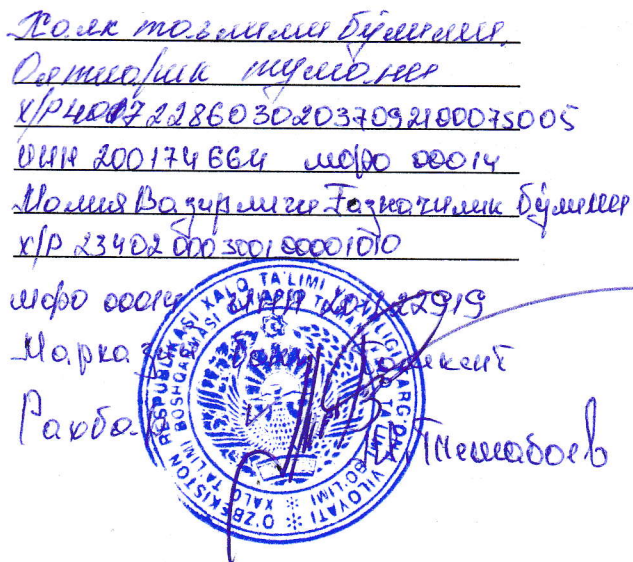 Халк таълими бўлими
Олтиарик тумани
х/р 400722860302037092100075005
ИНН 200174664 мфо 00014
Молия Вазирлиги Ғазначилик бўлими
х/р 23402000300100001010
мфо 00014 ИНН 201122919
Марказий Банк Тошкент
Рахбар Тешабоев
O'ZBEKISTON RESPUBLIKASI XALQ TA'LIMI VAZIRLIGI FARG'ONA VILOYATI XALQ TA'LIMI BOSHQARMASI
XALQ TA'LIMI BO'LIMI